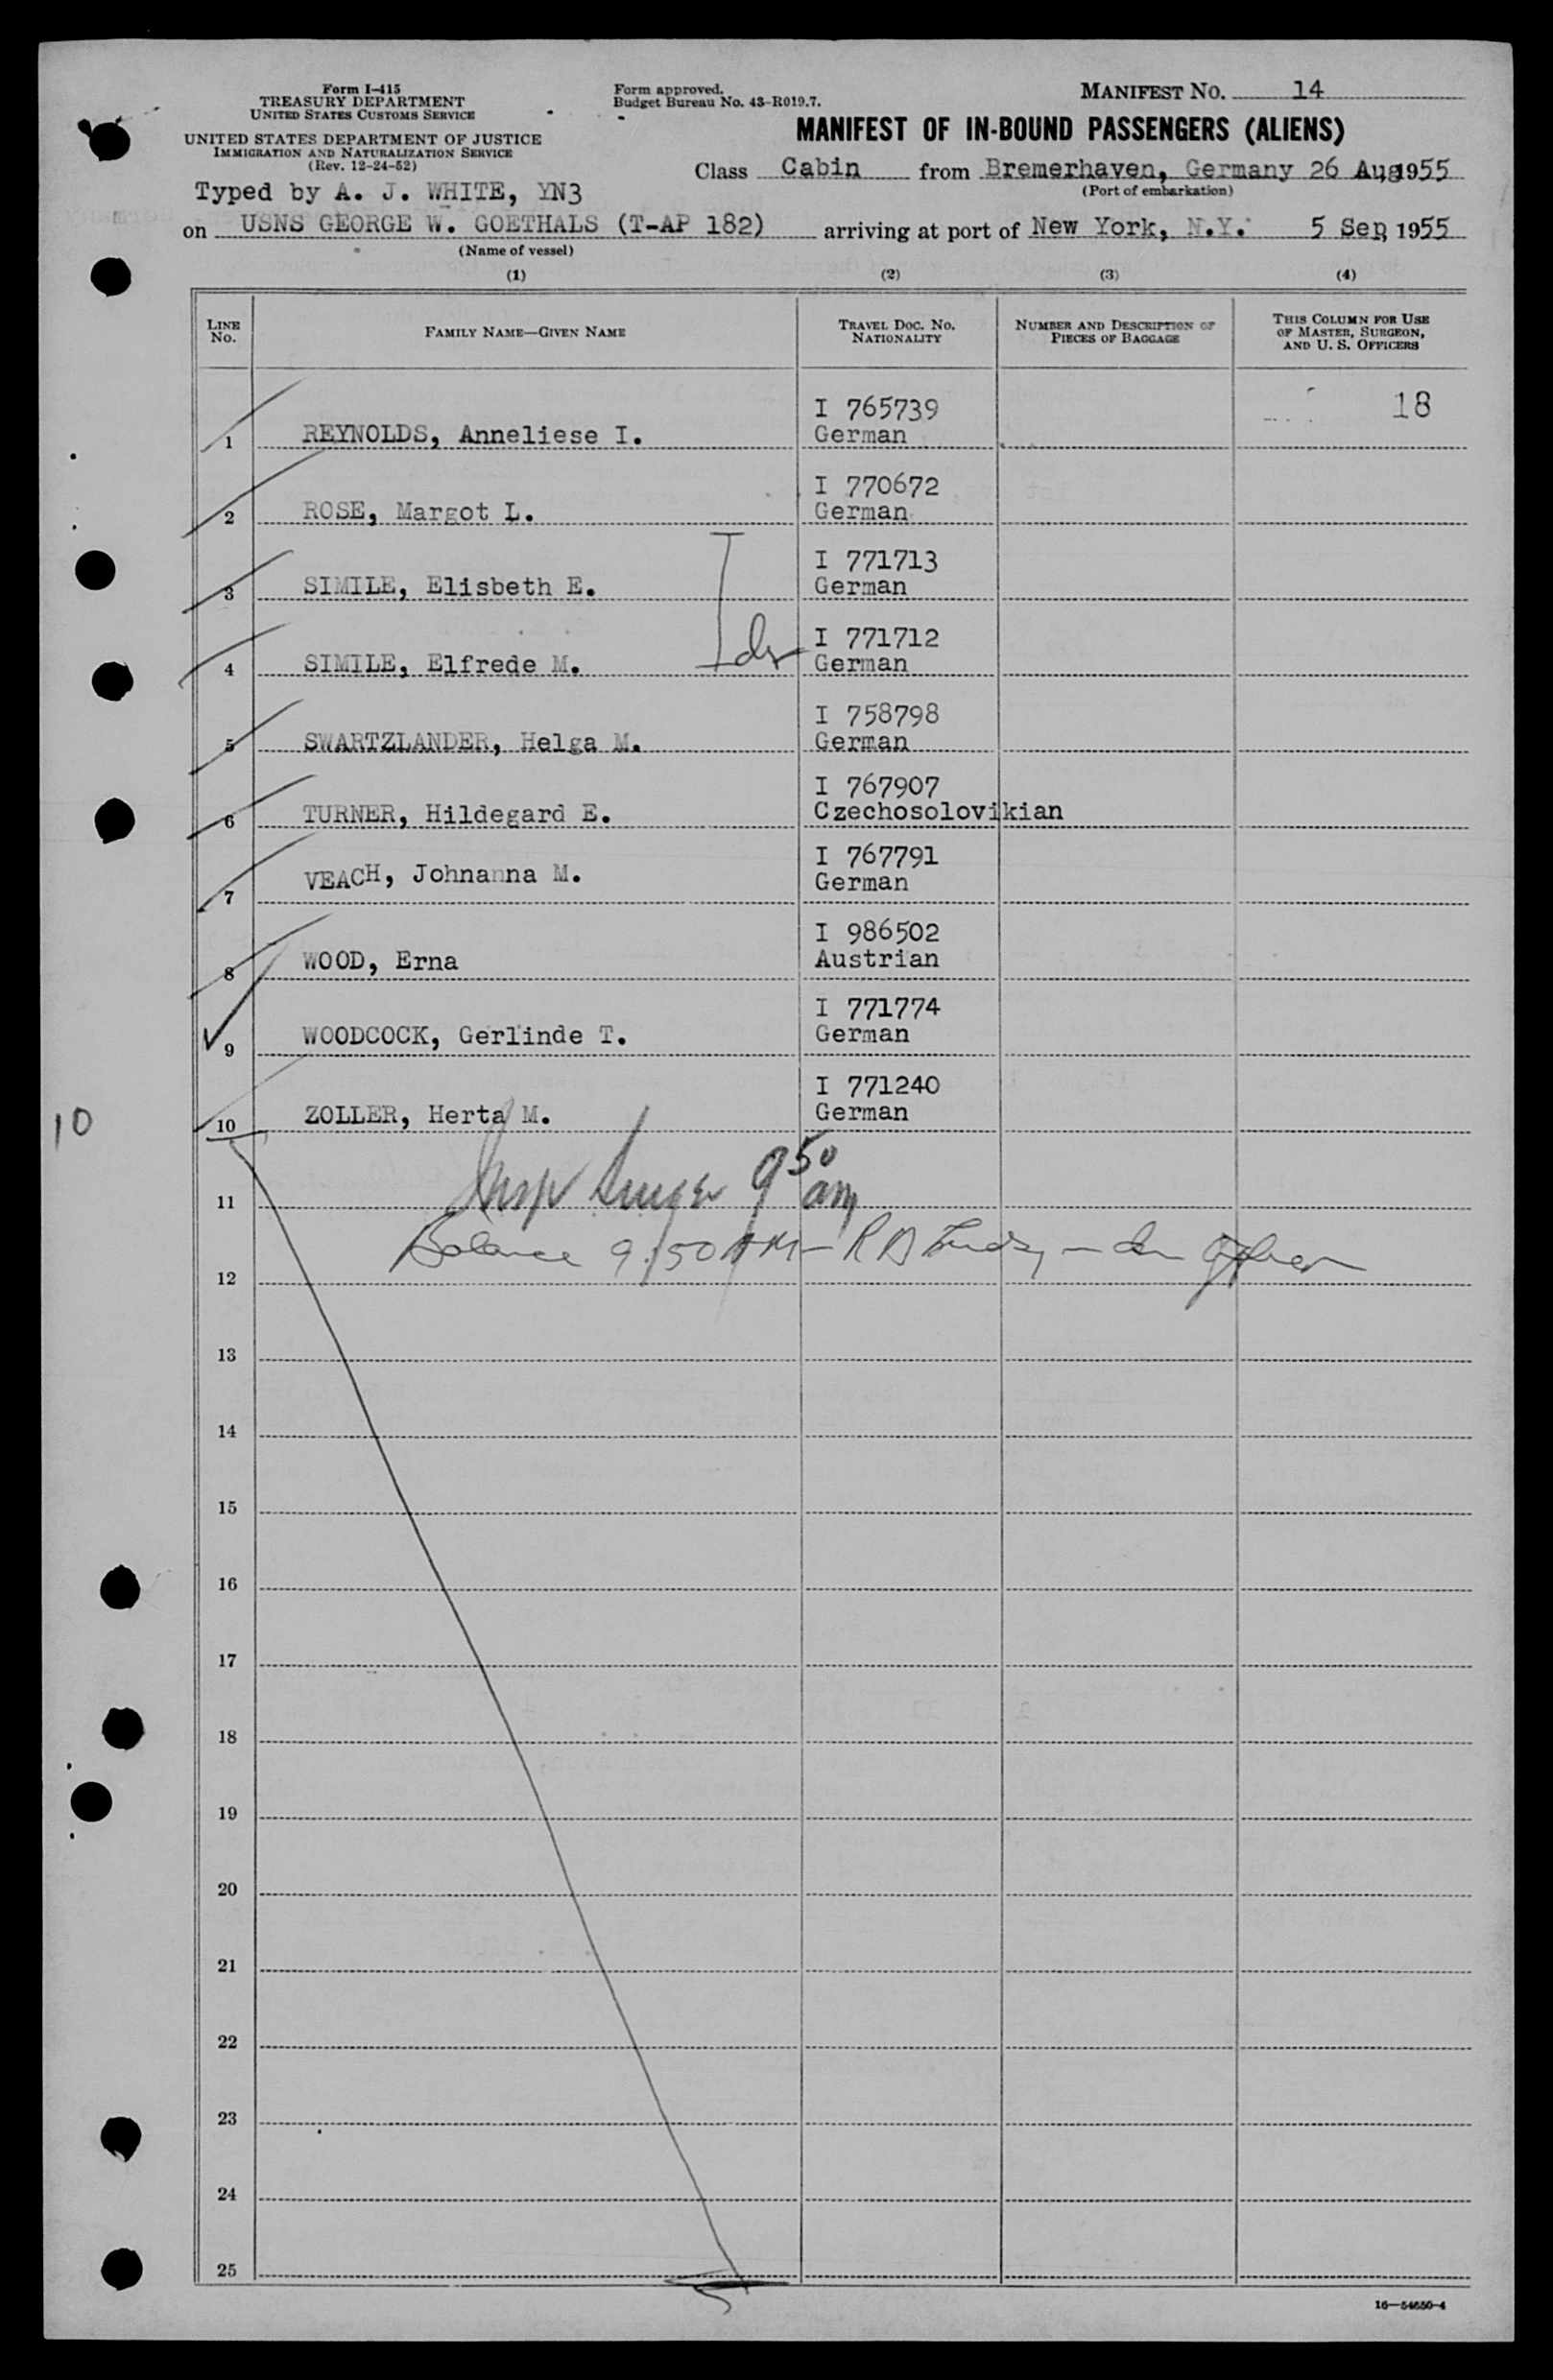 Form I-415
TREASURY DEPARTMENT
UNITED STATES CUSTOMS SERVICE
UNITED STATES DEPARTMENT OF JUSTICE
IMMIGRATION AND NATURALIZATION SERVICE
(Rev. 12-24-52)
Form approved.
Budget Bureau No. 43-R019.7.
MANIFEST NO. 14
MANIFEST OF IN-BOUND PASSENGERS (ALIENS)
Class Cabin from Bremerhaven, Germany 26 Aug 1955
(Port of embarkation)
Typed by A. J. WHITE, YN3
on USNS GEORGE W. GOETHALS (T-AP 182) arriving at port of New York, N.Y. 5 Sep, 1955
(Name of vessel)
(1) (2) (3) (4)
LINE NO.
FAMILY NAME—GIVEN NAME
TRAVEL DOC. NO. NATIONALITY
NUMBER AND DESCRIPTION OF PIECES OF BAGGAGE
THIS COLUMN FOR USE OF MASTER, SURGEON, AND U. S. OFFICERS
I 765739 18
1 REYNOLDS, Anneliese I. German
I 770672
2 ROSE, Margot L. German
I 771713
3 SIMILE, Elisbeth E. German
I 771712
4 SIMILE, Elfrede M. German
I 758798
5 SWARTZLANDER, Helga M. German
I 767907
6 TURNER, Hildegard E. Czechosolovikian
I 767791
7 VEACH, Johnanna M. German
I 986502
8 WOOD, Erna Austrian
I 771774
9 WOODCOCK, Gerlinde T. German
I 771240
10 10 ZOLLER, Herta M. German
11 Insp 9 50 am
12 Balance 9:50 AM - R D
13
14
15
16
17
18
19
20
21
22
23
24
25
16—54650-4